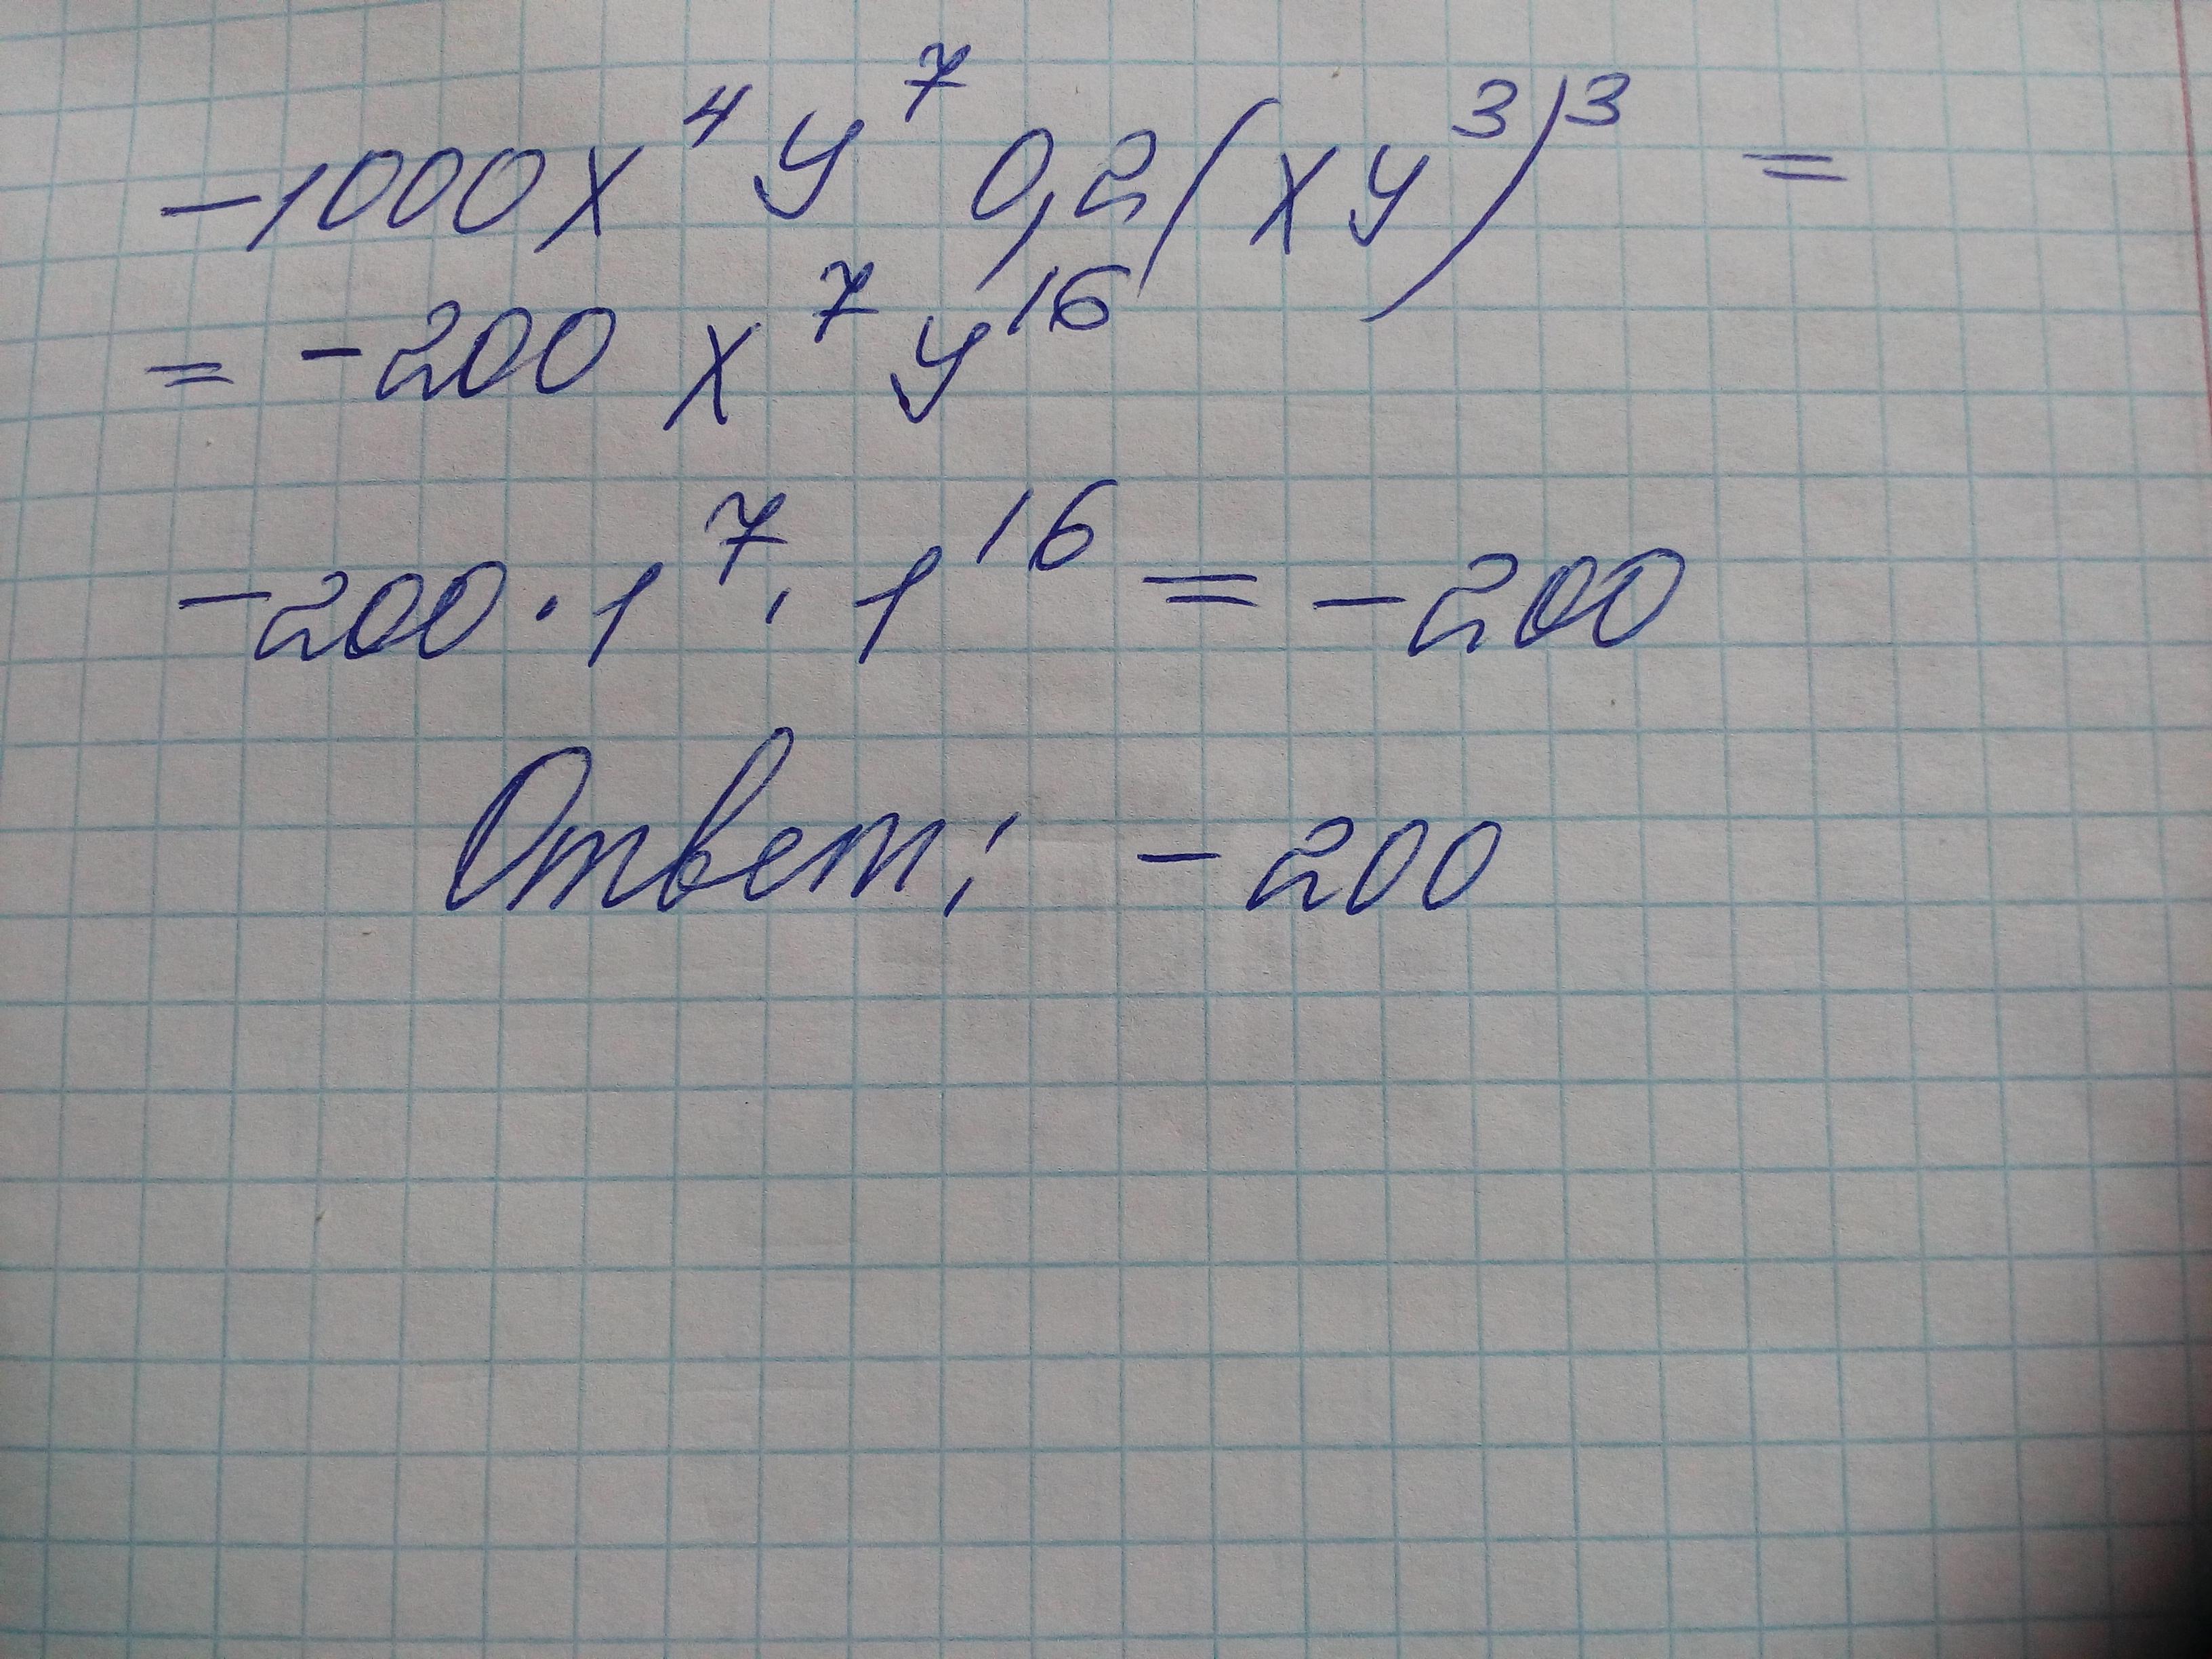 -1000x⁴y⁷ 0,2(xy³)³ =
= -200 x⁷y¹⁶
-200 · 1⁷ · 1¹⁶ = -200
Ответ: -200